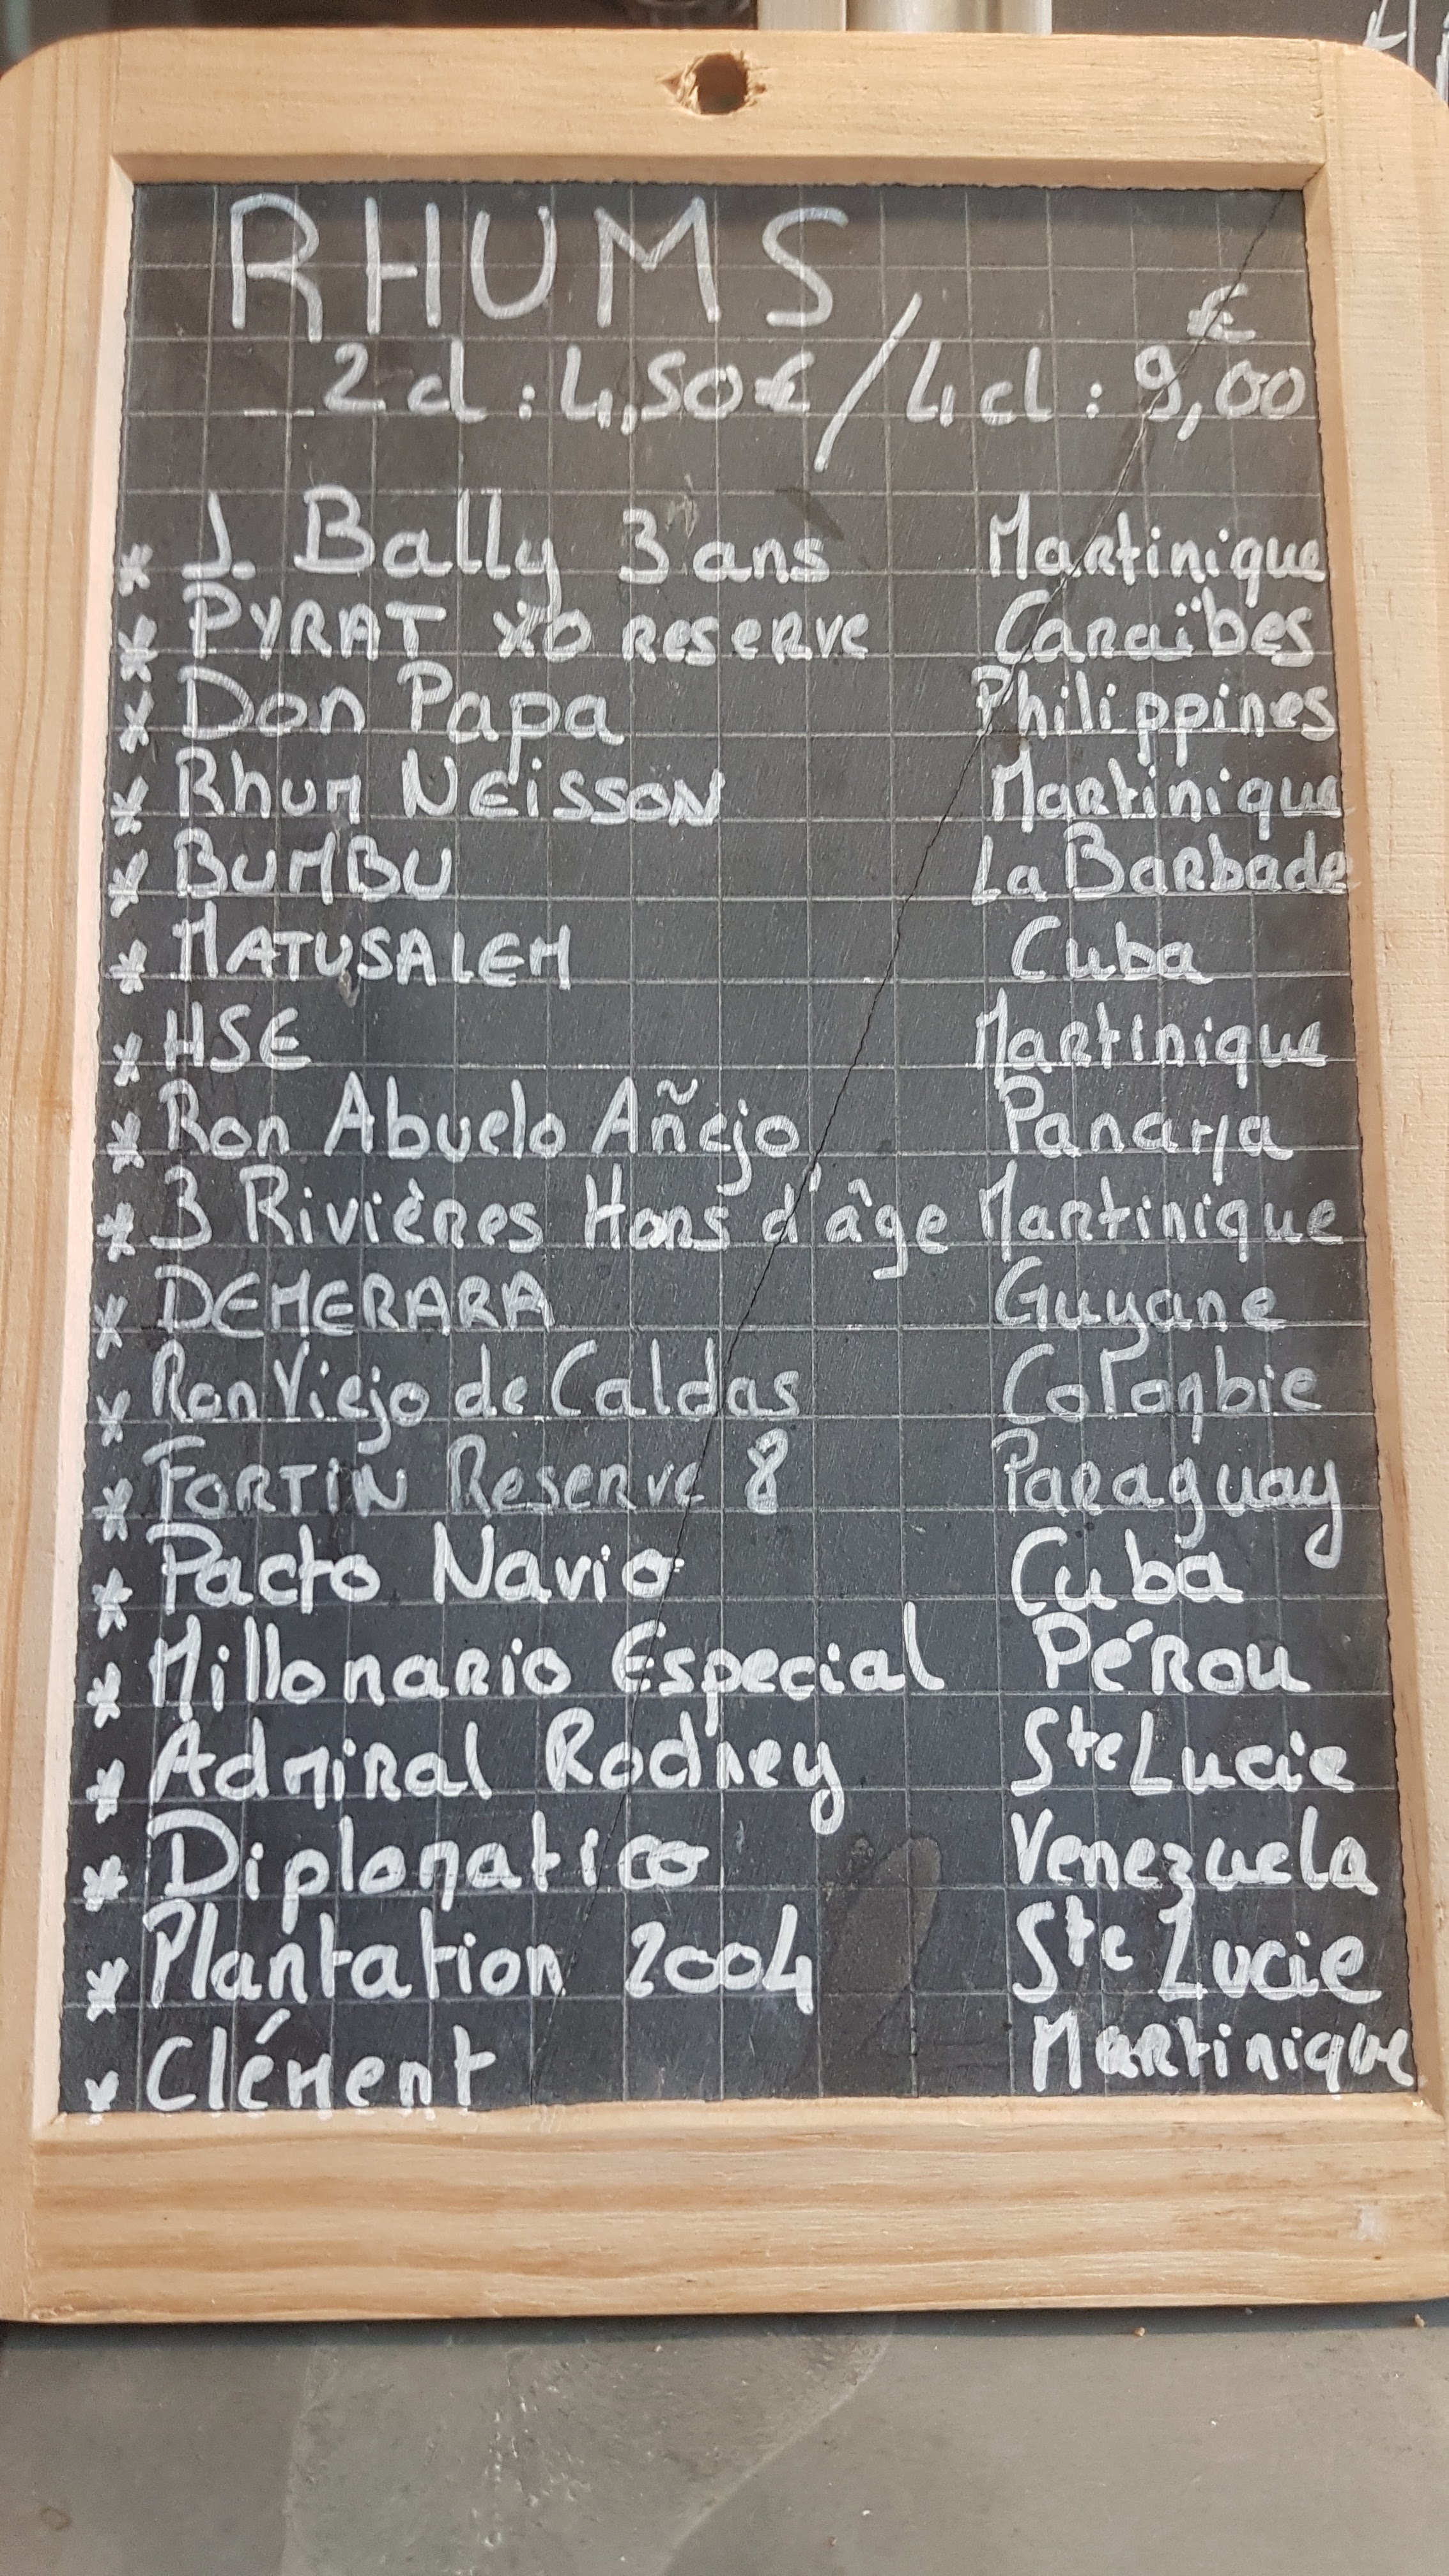 RHUMS
2cl : 4,50€ / 4cl : 9,00 €
* J. Bally 3 ans Martinique
* PYRAT XO ReseRve Caraïbes
* Don Papa Philippines
* Rhum NEISSON Martinique
* BUMBU La Barbade
* MATUSALEM Cuba
* HSE Martinique
* Ron Abuelo Añejo Panama
* 3 Rivières Hors d'âge Martinique
* DEMERARA Guyane
* Ron Viejo de Caldas Colombie
* FORTIN Reserve 8 Paraguay
* Pacto Navio Cuba
* Millonario Especial Pérou
* Admiral Rodney Ste Lucie
* Diplomatico Venezuela
* Plantation 2004 Ste Lucie
* Clément Martinique